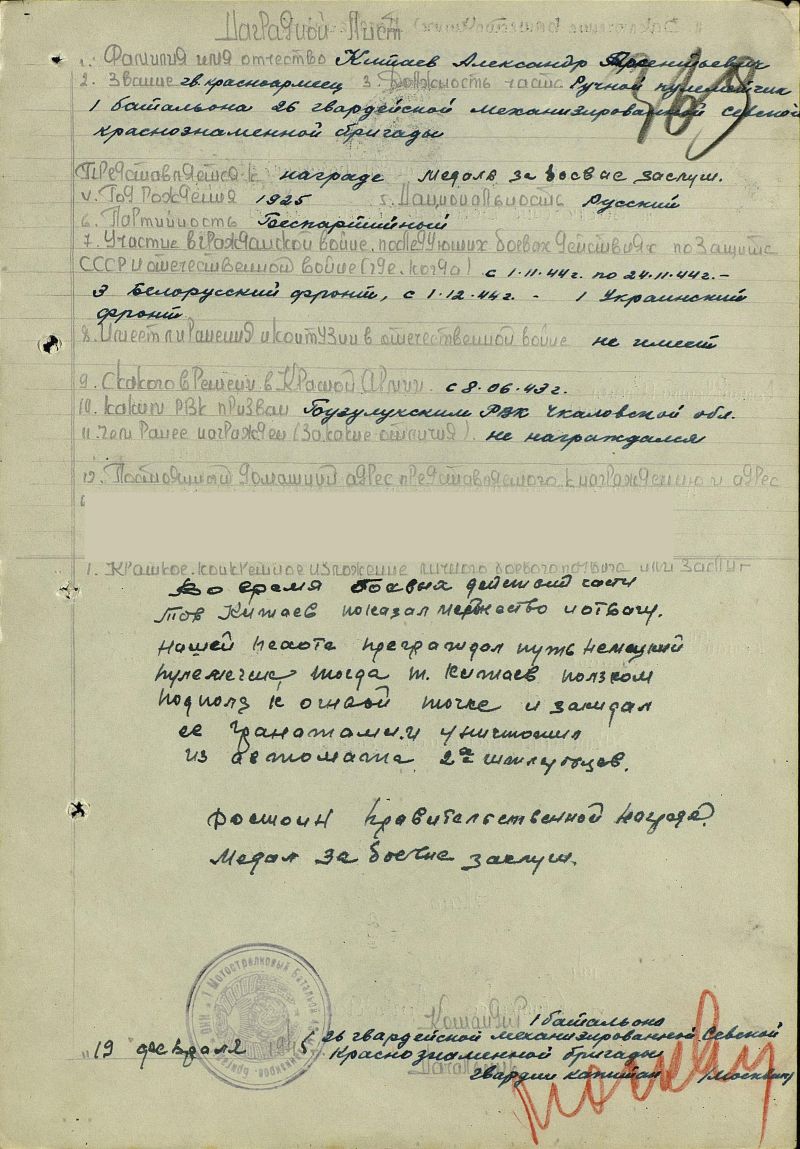 Наградной Лист
1. Фамилия имя отчество Китаев Александр Арсентьевич
2. Звание гв. красноармеец 3. Должность часть Ручной пулеметчик
1 батальона 26 гвардейской механизированной Севской
краснознаменной бригады
Представляется к награде медаль за боевые заслуги.
Год рождения 1925 5. Национальность Русский
6. Партийность Беспартийный
7. Участие в гражданской войне. последующих боевых действиях по защите
СССР и отечественной войне (где. когда) с 1.11.44г. по 24.11.44г. -
3 Белорусский фронт, с 1.12.44г. - 1 Украинский
фронт
8. Имеет ли ранения и контузии в отечественной войне не имеет
9. С какого времени в Красной Армии. с 8.06.43г.
10. каким РВК призван Бузулукским РВК Чкаловской обл.
11. чем ранее награжден (за какие отличия). не награждался
12. Постоянный домашний адрес представляемого к награждению и адрес
1. Краткое. конкретное изложение личного боевого подвига или заслуг
Во время боевых действий части
Тов Китаев показал мужество и отвагу.
Нашей пехоте преграждал путь немецкий
пулеметчик, тогда т. Китаев ползком
подполз к огневой точке и закидал
ее гранатами. и уничтожил
из автомата 2х гитлеровцев.
Достоин Правительственной награда.
Медал за боевые заслуги.
1 батальона
"19 февраля 1945 26 гвардейской механизированной Севской
Краснознаменной бригады
гвардии капитан /Москвин/